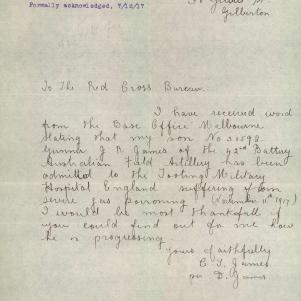 Formally acknowledged, 7/12/17
Gilberton
To The Red Cross Bureau
I have received word
from the Base Office Melbourne
stating that my son No
Gunner J R James of the 42nd Battery
Australian Field Artillery has been
admitted to the Tooting Military
Hospital England suffering from
severe gas poisoning (November 11th 1917)
I would be most thankfull if
you could find out for me how
he is progressing
Yours faithfully
James
per D. James